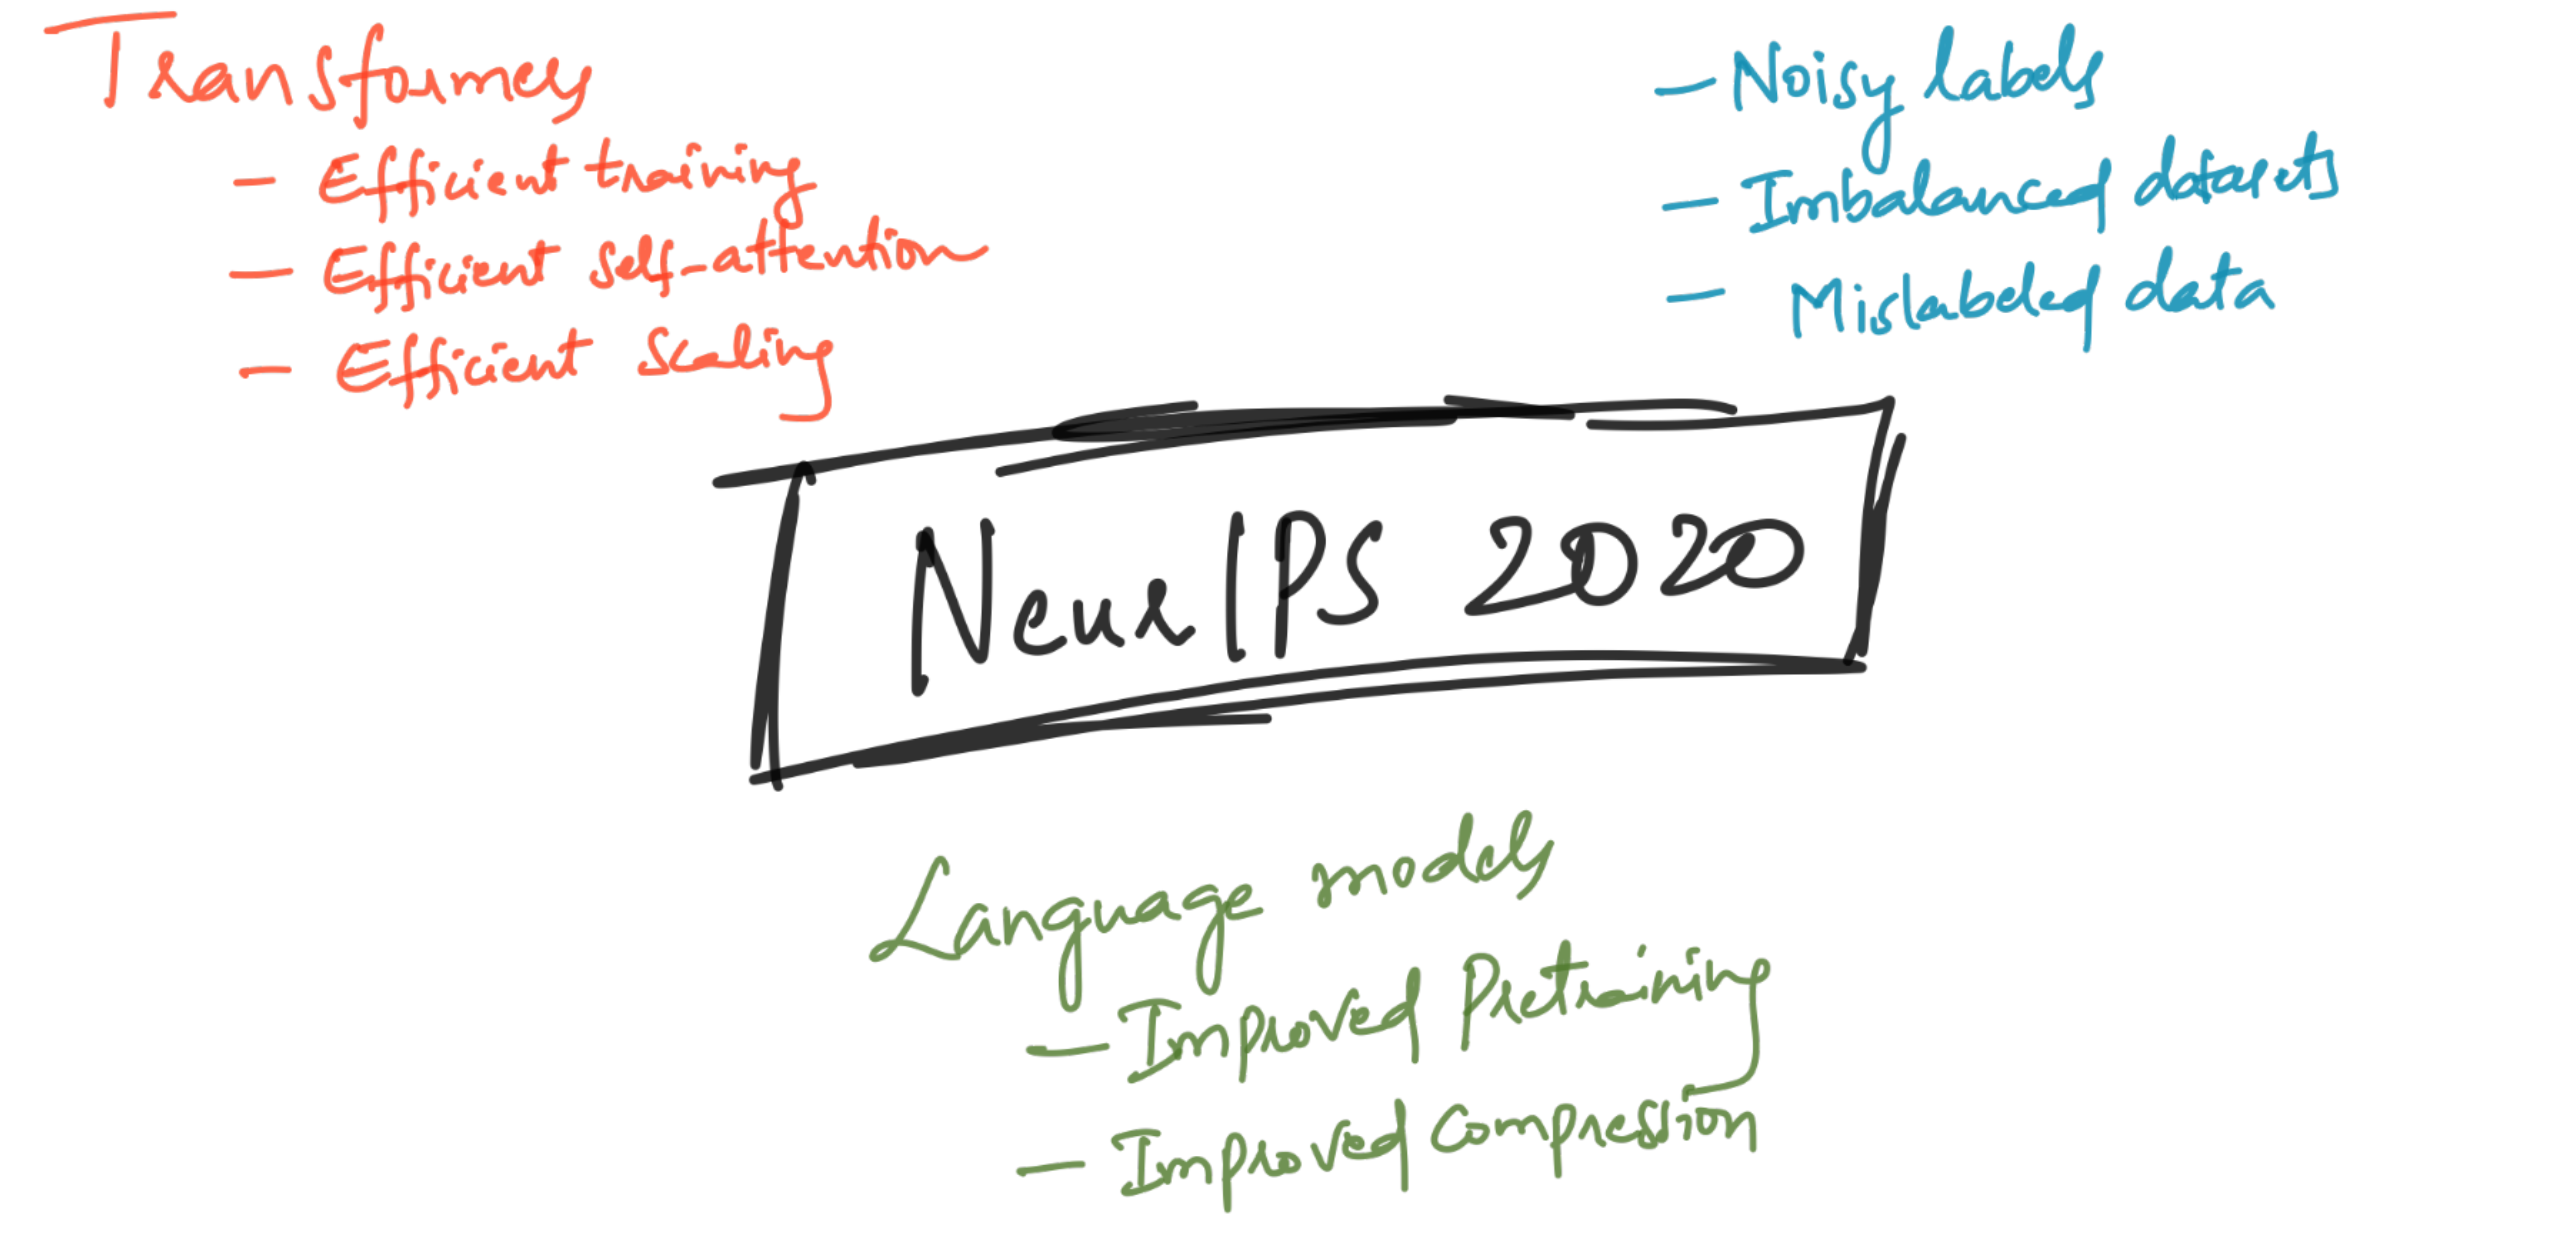 Transformers
- Efficient training
- Efficient self-attention
- Efficient scaling
- Noisy labels
- Imbalanced datasets
- Mislabeled data
NeurIPS 2020
Language models
- Improved Pretraining
- Improved compression